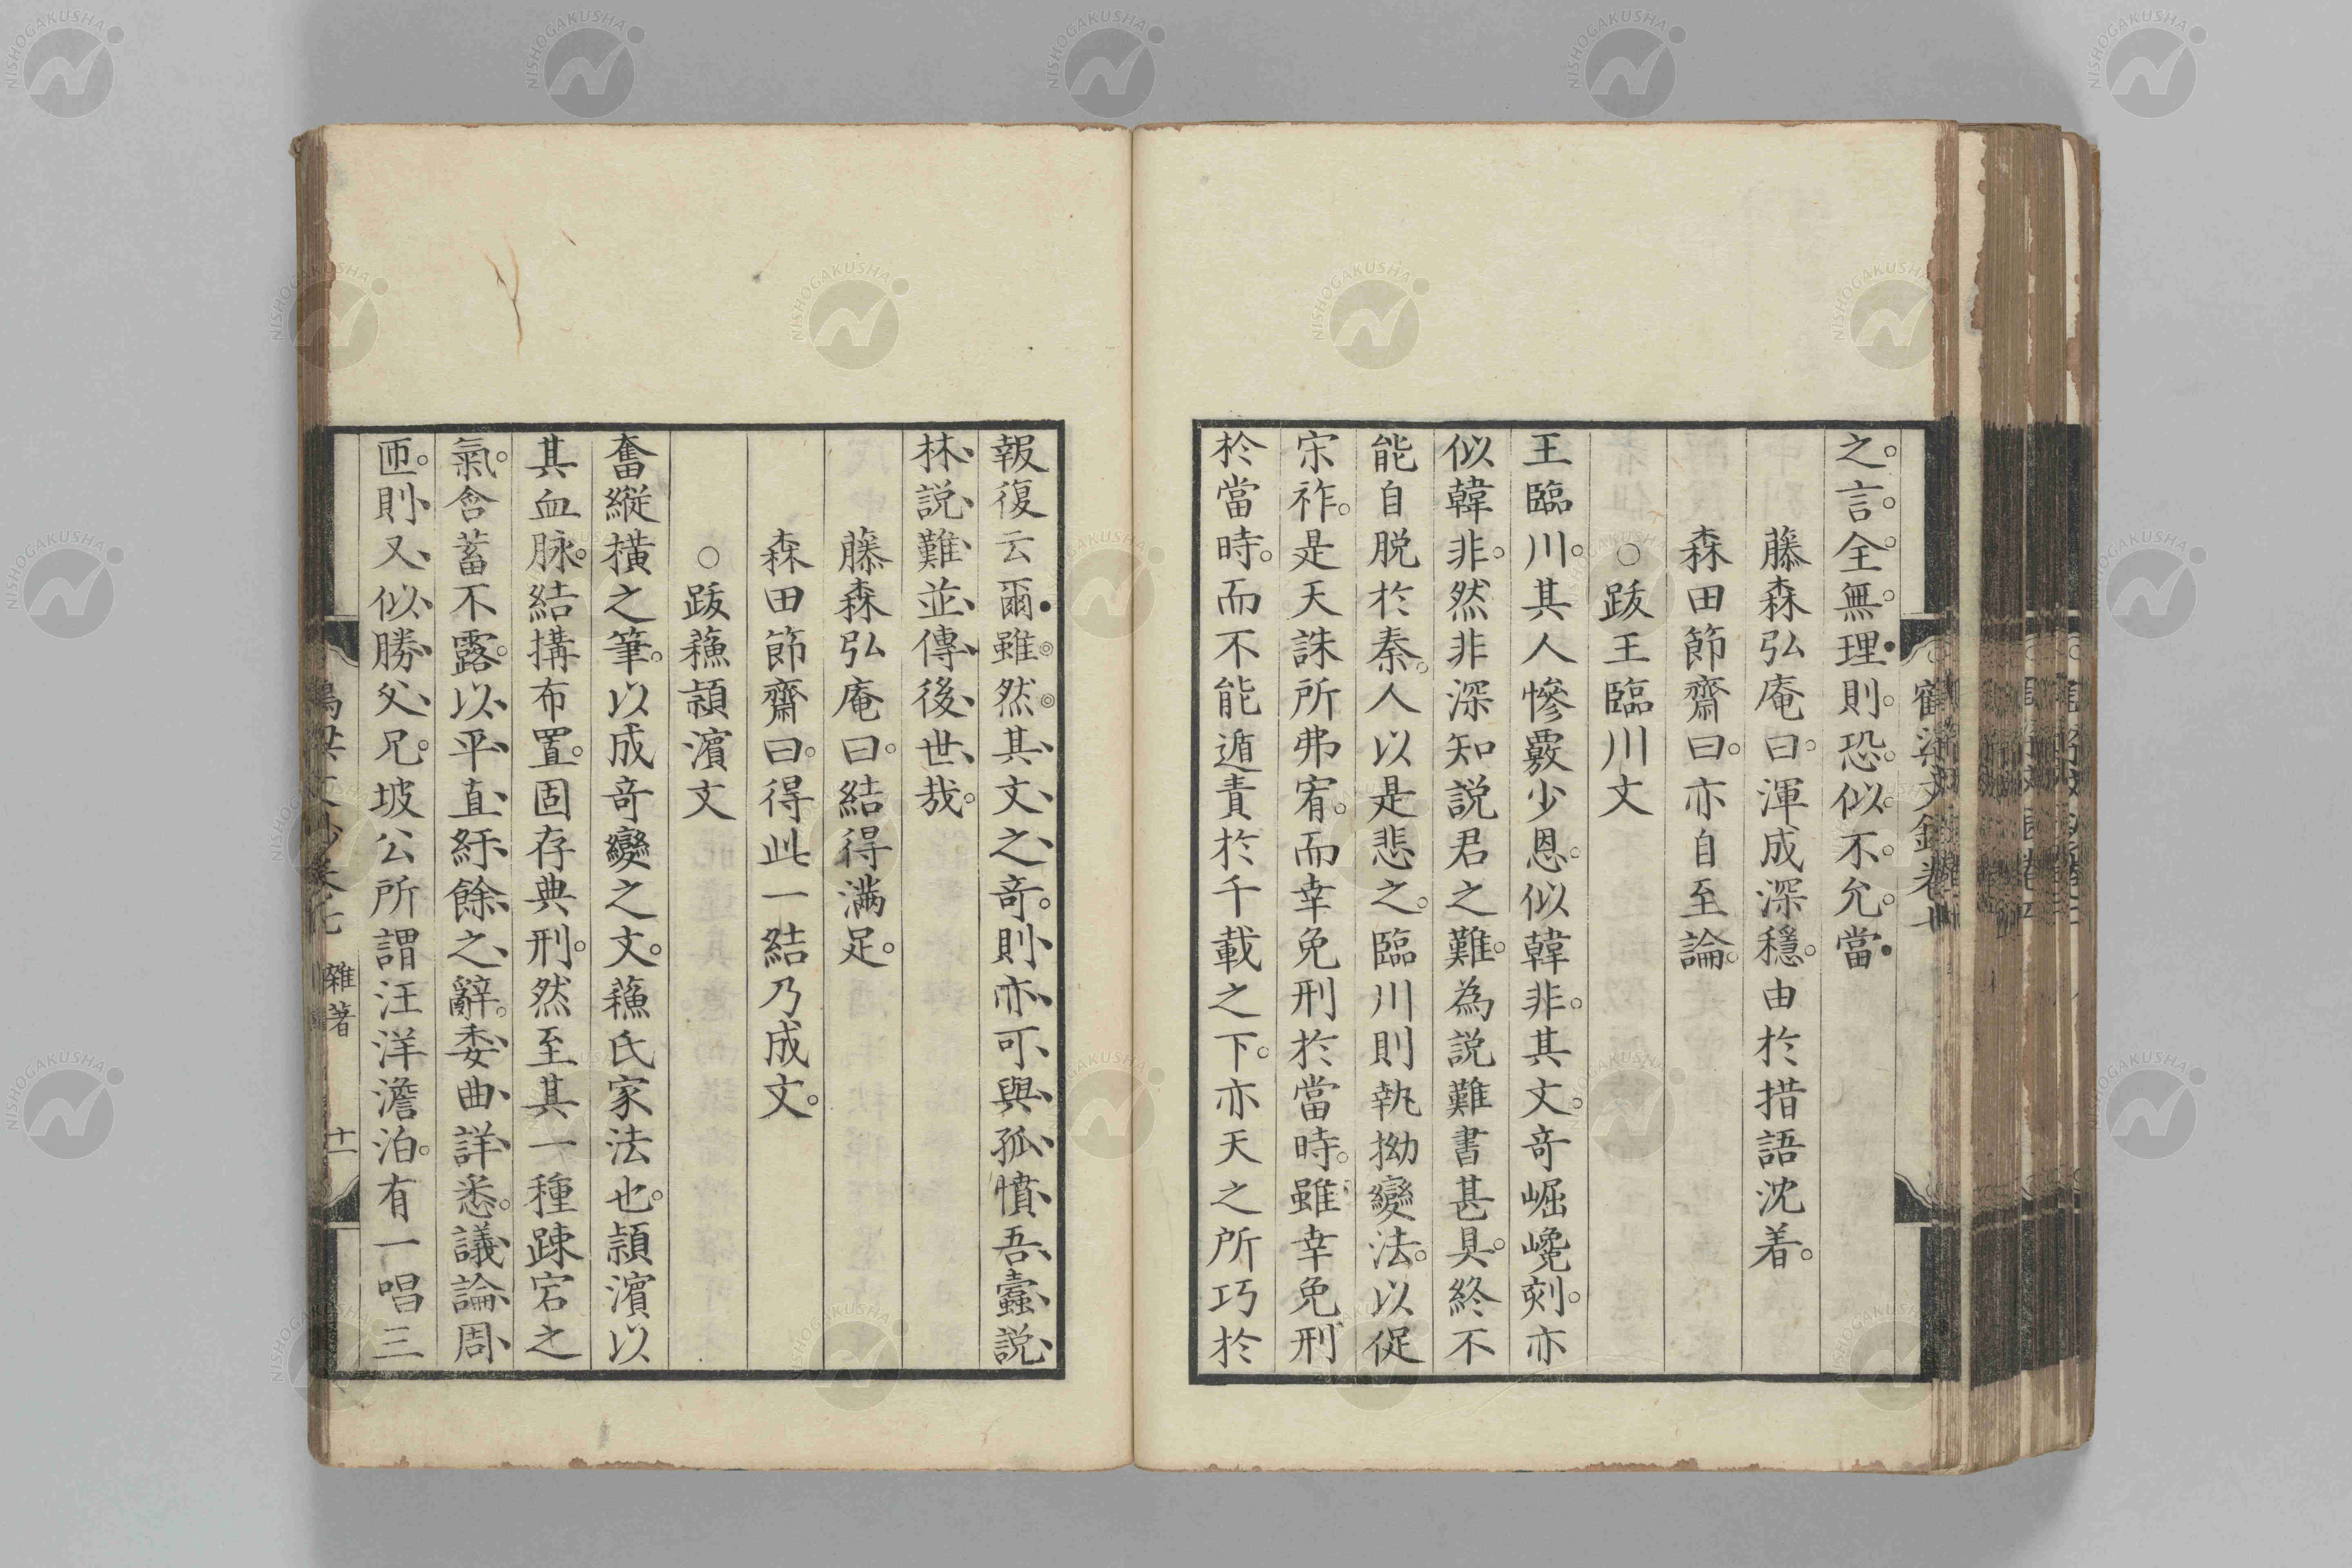 之言。全無理則恐似不允當
藤森弘庵曰。渾成深穩。由於措語沈着。
森田節齋曰。亦自至論。
○跋王臨川文
王臨川。其人慘覈少恩。似韓非。其文。奇崛巉刻。亦
似韓非。然非深知説君之難。為説難書甚具。終不
能自脱於秦。人以是悲之。臨川則執拗變法。以促
宋祚。是天誅所弗宥。而幸免刑於當時。雖幸免刑
於當時。而不能遁責於千載之下。亦天之所巧於
報復云爾。雖然其文之奇。則亦可與孤憤吾蠹説
林説難並傳後世哉。
藤森弘庵曰。結得滿足。
森田節齋曰。得此一結乃成文。
○跋蘓頴濱文
奮縱横之筆。以成奇變之文。蘓氏家法也。頴濱以
其血脉。結搆布置。固存典刑。然至其一種踈宕之
氣。含蓄不露。以平直紆餘之辭。委曲詳悉。議論周
匝。則又似勝父兄。坡公所謂汪洋澹泊。有一唱三
雜著
十一
NISHOGAKUSHA